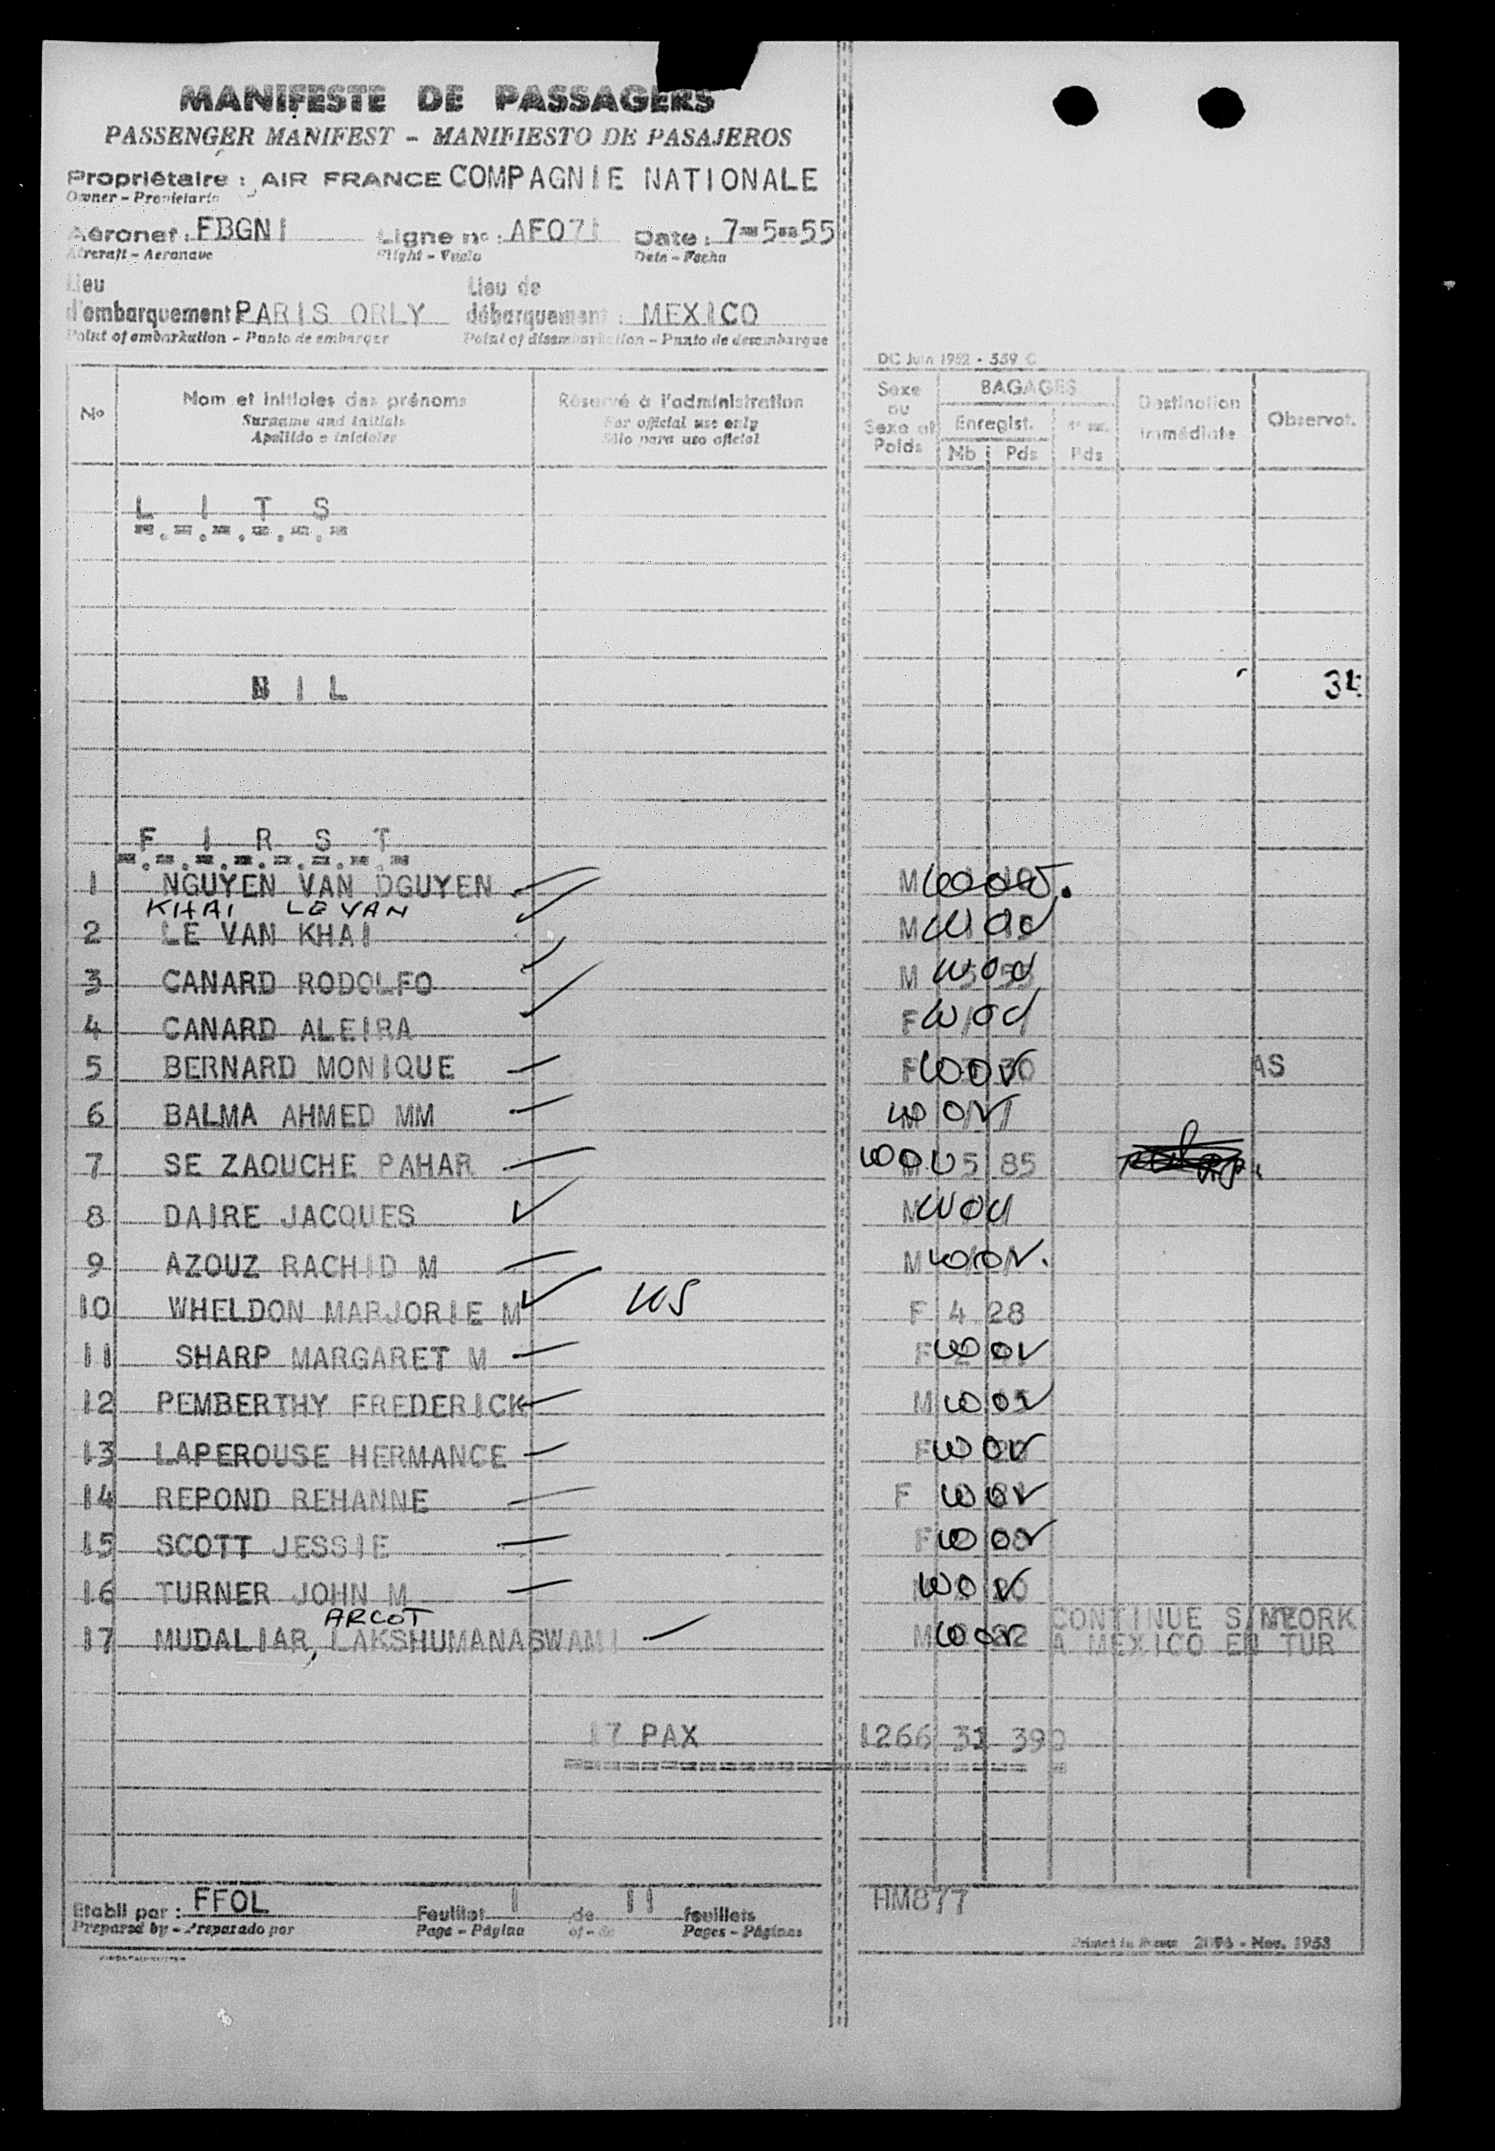 MANIFESTE DE PASSAGERS
PASSENGER MANIFEST - MANIFIESTO DE PASAJEROS
Propriétaire : AIR FRANCE COMPAGNIE NATIONALE
Owner - Propietario
Aéronef : FBGNI Ligne n° : AF071 Date : 7-5-55
Aircraft - Aeronave Flight - Vuelo Date - Fecha
Lieu d'embarquement PARIS ORLY Lieu de débarquement : MEXICO
Point of embarkation - Punto de embarque Point of disembarkation - Punto de desembarque
DC Juin 1952 - 559 C
N° Nom et initiales des prénoms Réservé à l'administration Sexe ou Sexe et Poids BAGAGES Destination immédiate Observat.
Surname and initials For official use only Enregist.
Apellido e iniciales Sólo para uso oficial Nb Pds Pds
L I T S
N I L 34
F I R S T
1 NGUYEN VAN DGUYEN M
KHAI LE VAN
2 LE VAN KHAI M
3 CANARD RODOLFO M
4 CANARD ALEIRA F
5 BERNARD MONIQUE F AS
6 BALMA AHMED MM
7 SE ZAOUCHE PAHAR 5 85
8 DAIRE JACQUES M
9 AZOUZ RACHID M M
10 WHELDON MARJORIE M US F 4 28
11 SHARP MARGARET M F
12 PEMBERTHY FREDERICK M
13 LAPEROUSE HERMANCE F
14 REPOND REHANNE F
15 SCOTT JESSIE F
16 TURNER JOHN M
ARCOT
17 MUDALIAR, LAKSHUMANASWAMI M CONTINUE S/NYORK
A MEXICO EN TUR
17 PAX 1266 31 390
Etabli par : FFOL Feuillet 1 de 11 feuillets HM877
Prepared by - Preparado por Page - Página of - de Pages - Páginas
Printed in France 2096 - Nov. 1953